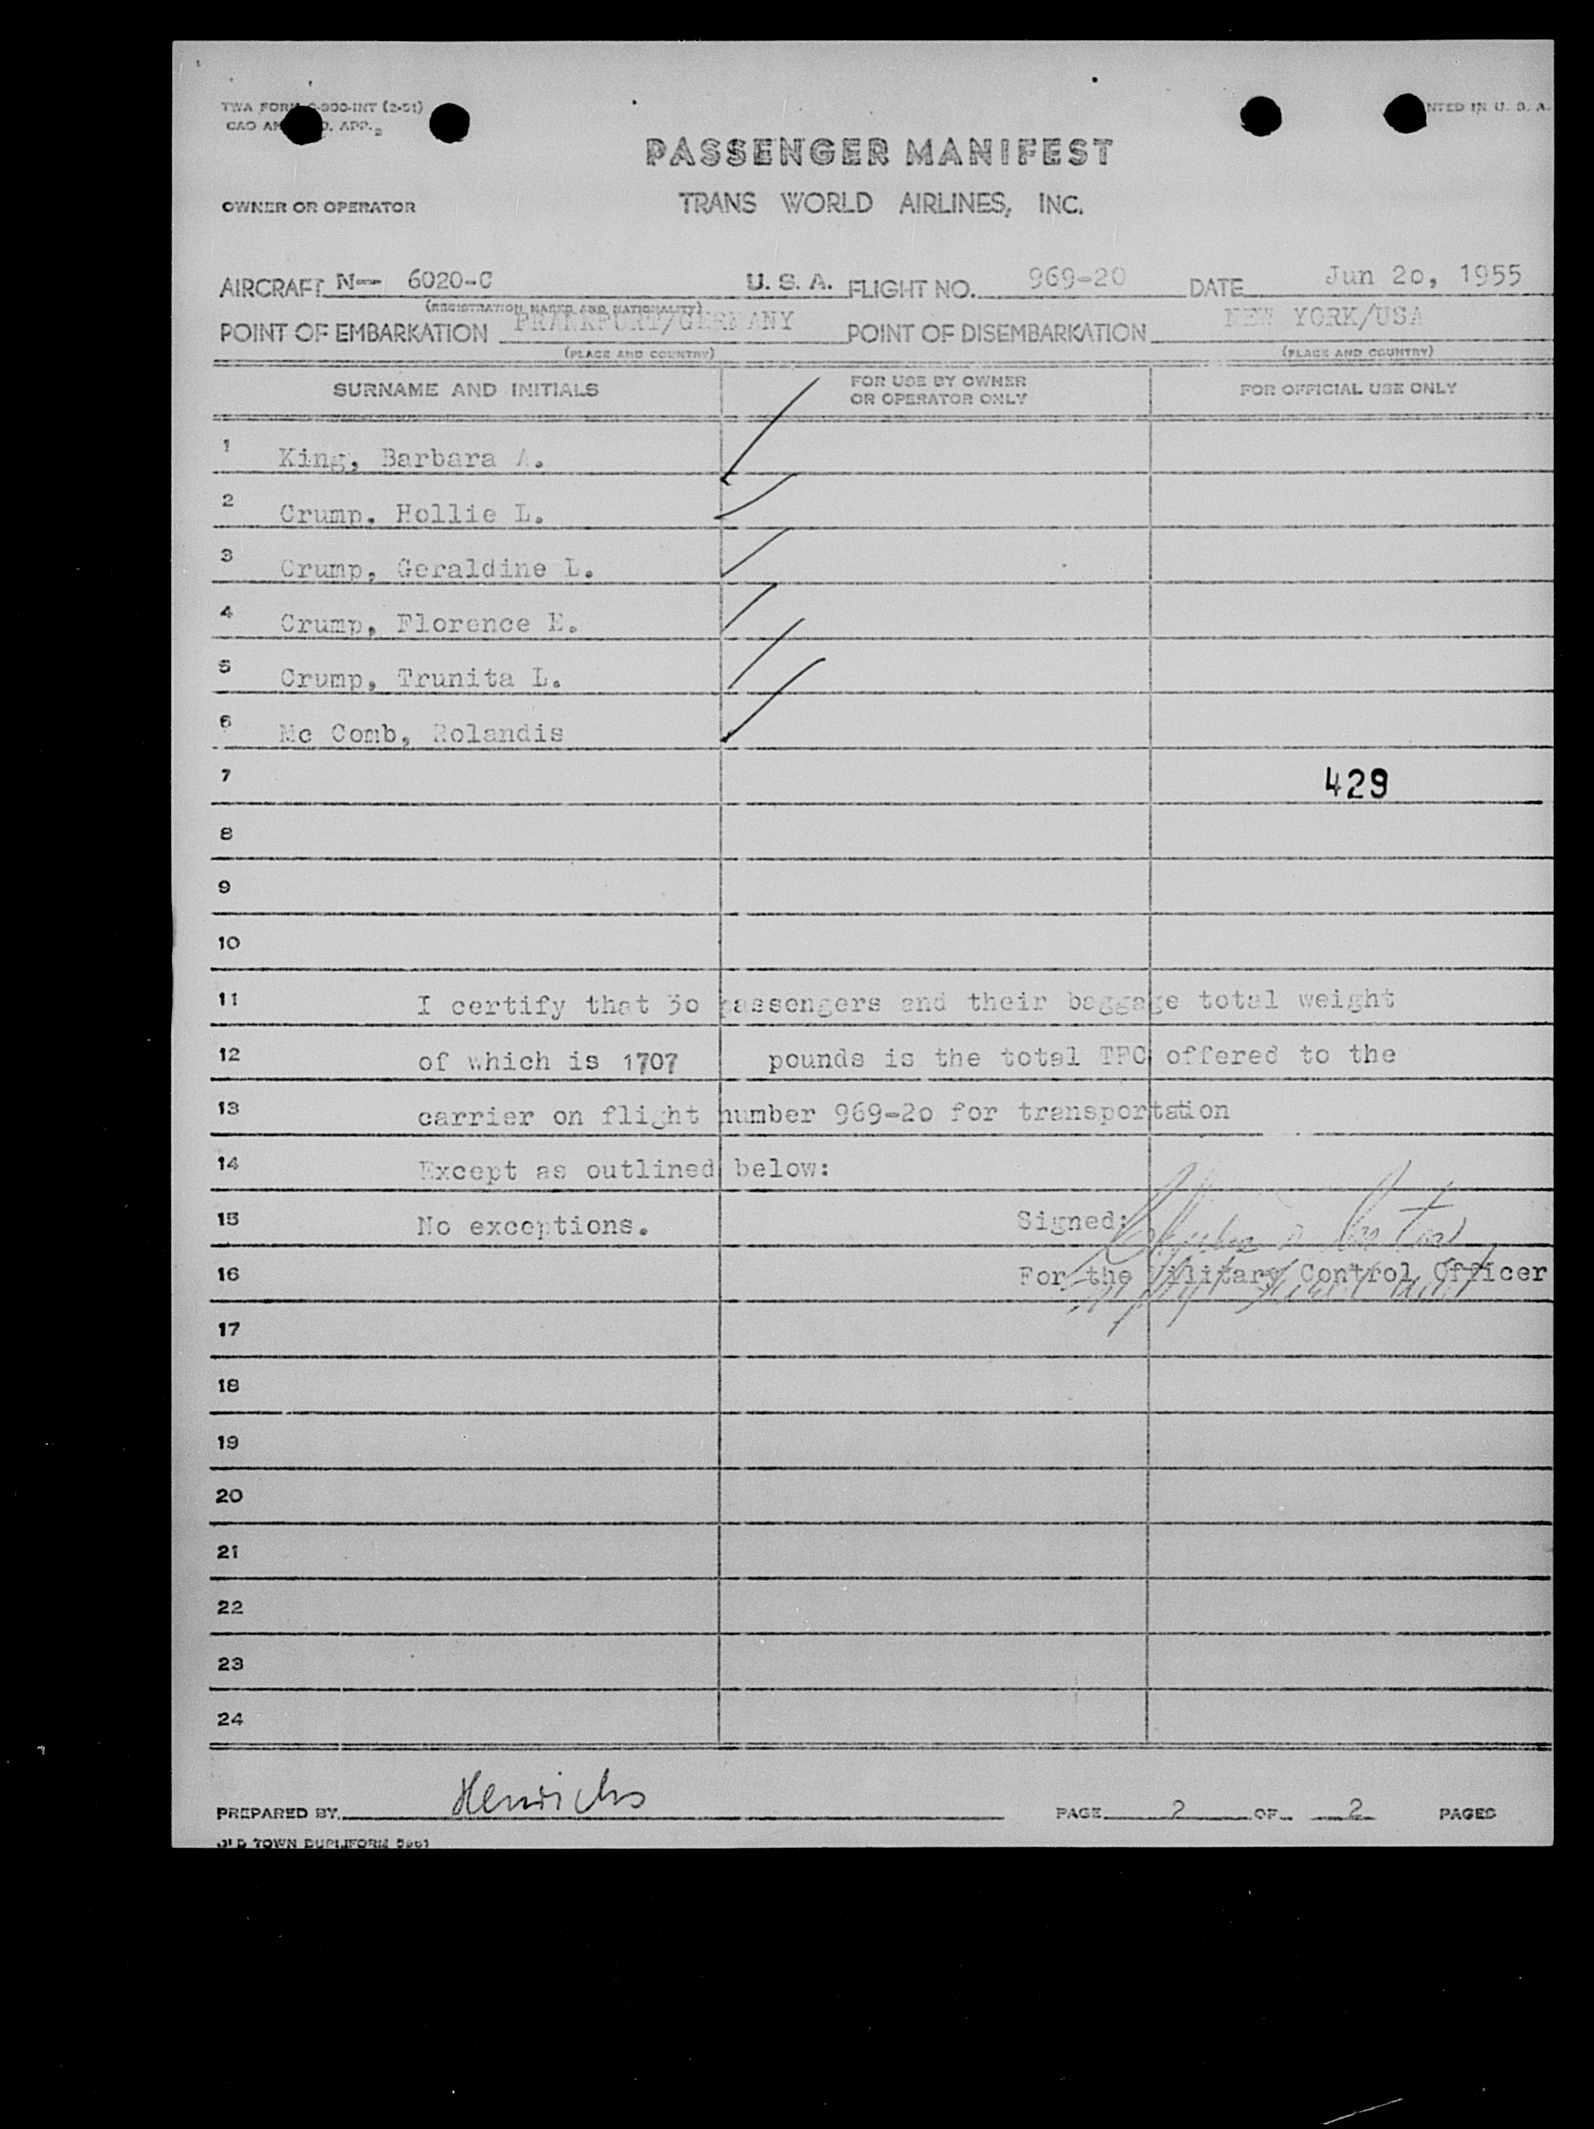 TWA FORM -300-INT (2-51)
NTED IN U. S. A.
CAO AN D. APP.
PASSENGER MANIFEST
OWNER OR OPERATOR TRANS WORLD AIRLINES, INC.
AIRCRAFT N-- 6020-C U. S. A. FLIGHT NO. 969-20 DATE Jun 2o, 1955
(REGISTRATION MARKS AND NATIONALITY)
POINT OF EMBARKATION FRANKFURT/GERMANY POINT OF DISEMBARKATION NEW YORK/USA
(PLACE AND COUNTRY) (PLACE AND COUNTRY)
SURNAME AND INITIALS FOR USE BY OWNER OR OPERATOR ONLY FOR OFFICIAL USE ONLY
1 King, Barbara A.
2 Crump, Hollie L.
3 Crump, Geraldine L.
4 Crump, Florence E.
5 Crump, Trunita L.
6 Mc Comb, Rolandis
7 429
8
9
10
11 I certify that 3o passengers and their baggage total weight
12 of which is 1707 pounds is the total TFC offered to the
13 carrier on flight number 969-2o for transportation
14 Except as outlined below:
15 No exceptions. Signed:
16 For the Military Control Officer
17
18
19
20
21
22
23
24
PREPARED BY Henrichs PAGE 2 OF 2 PAGES
OLD TOWN DUPLIFORM 5961